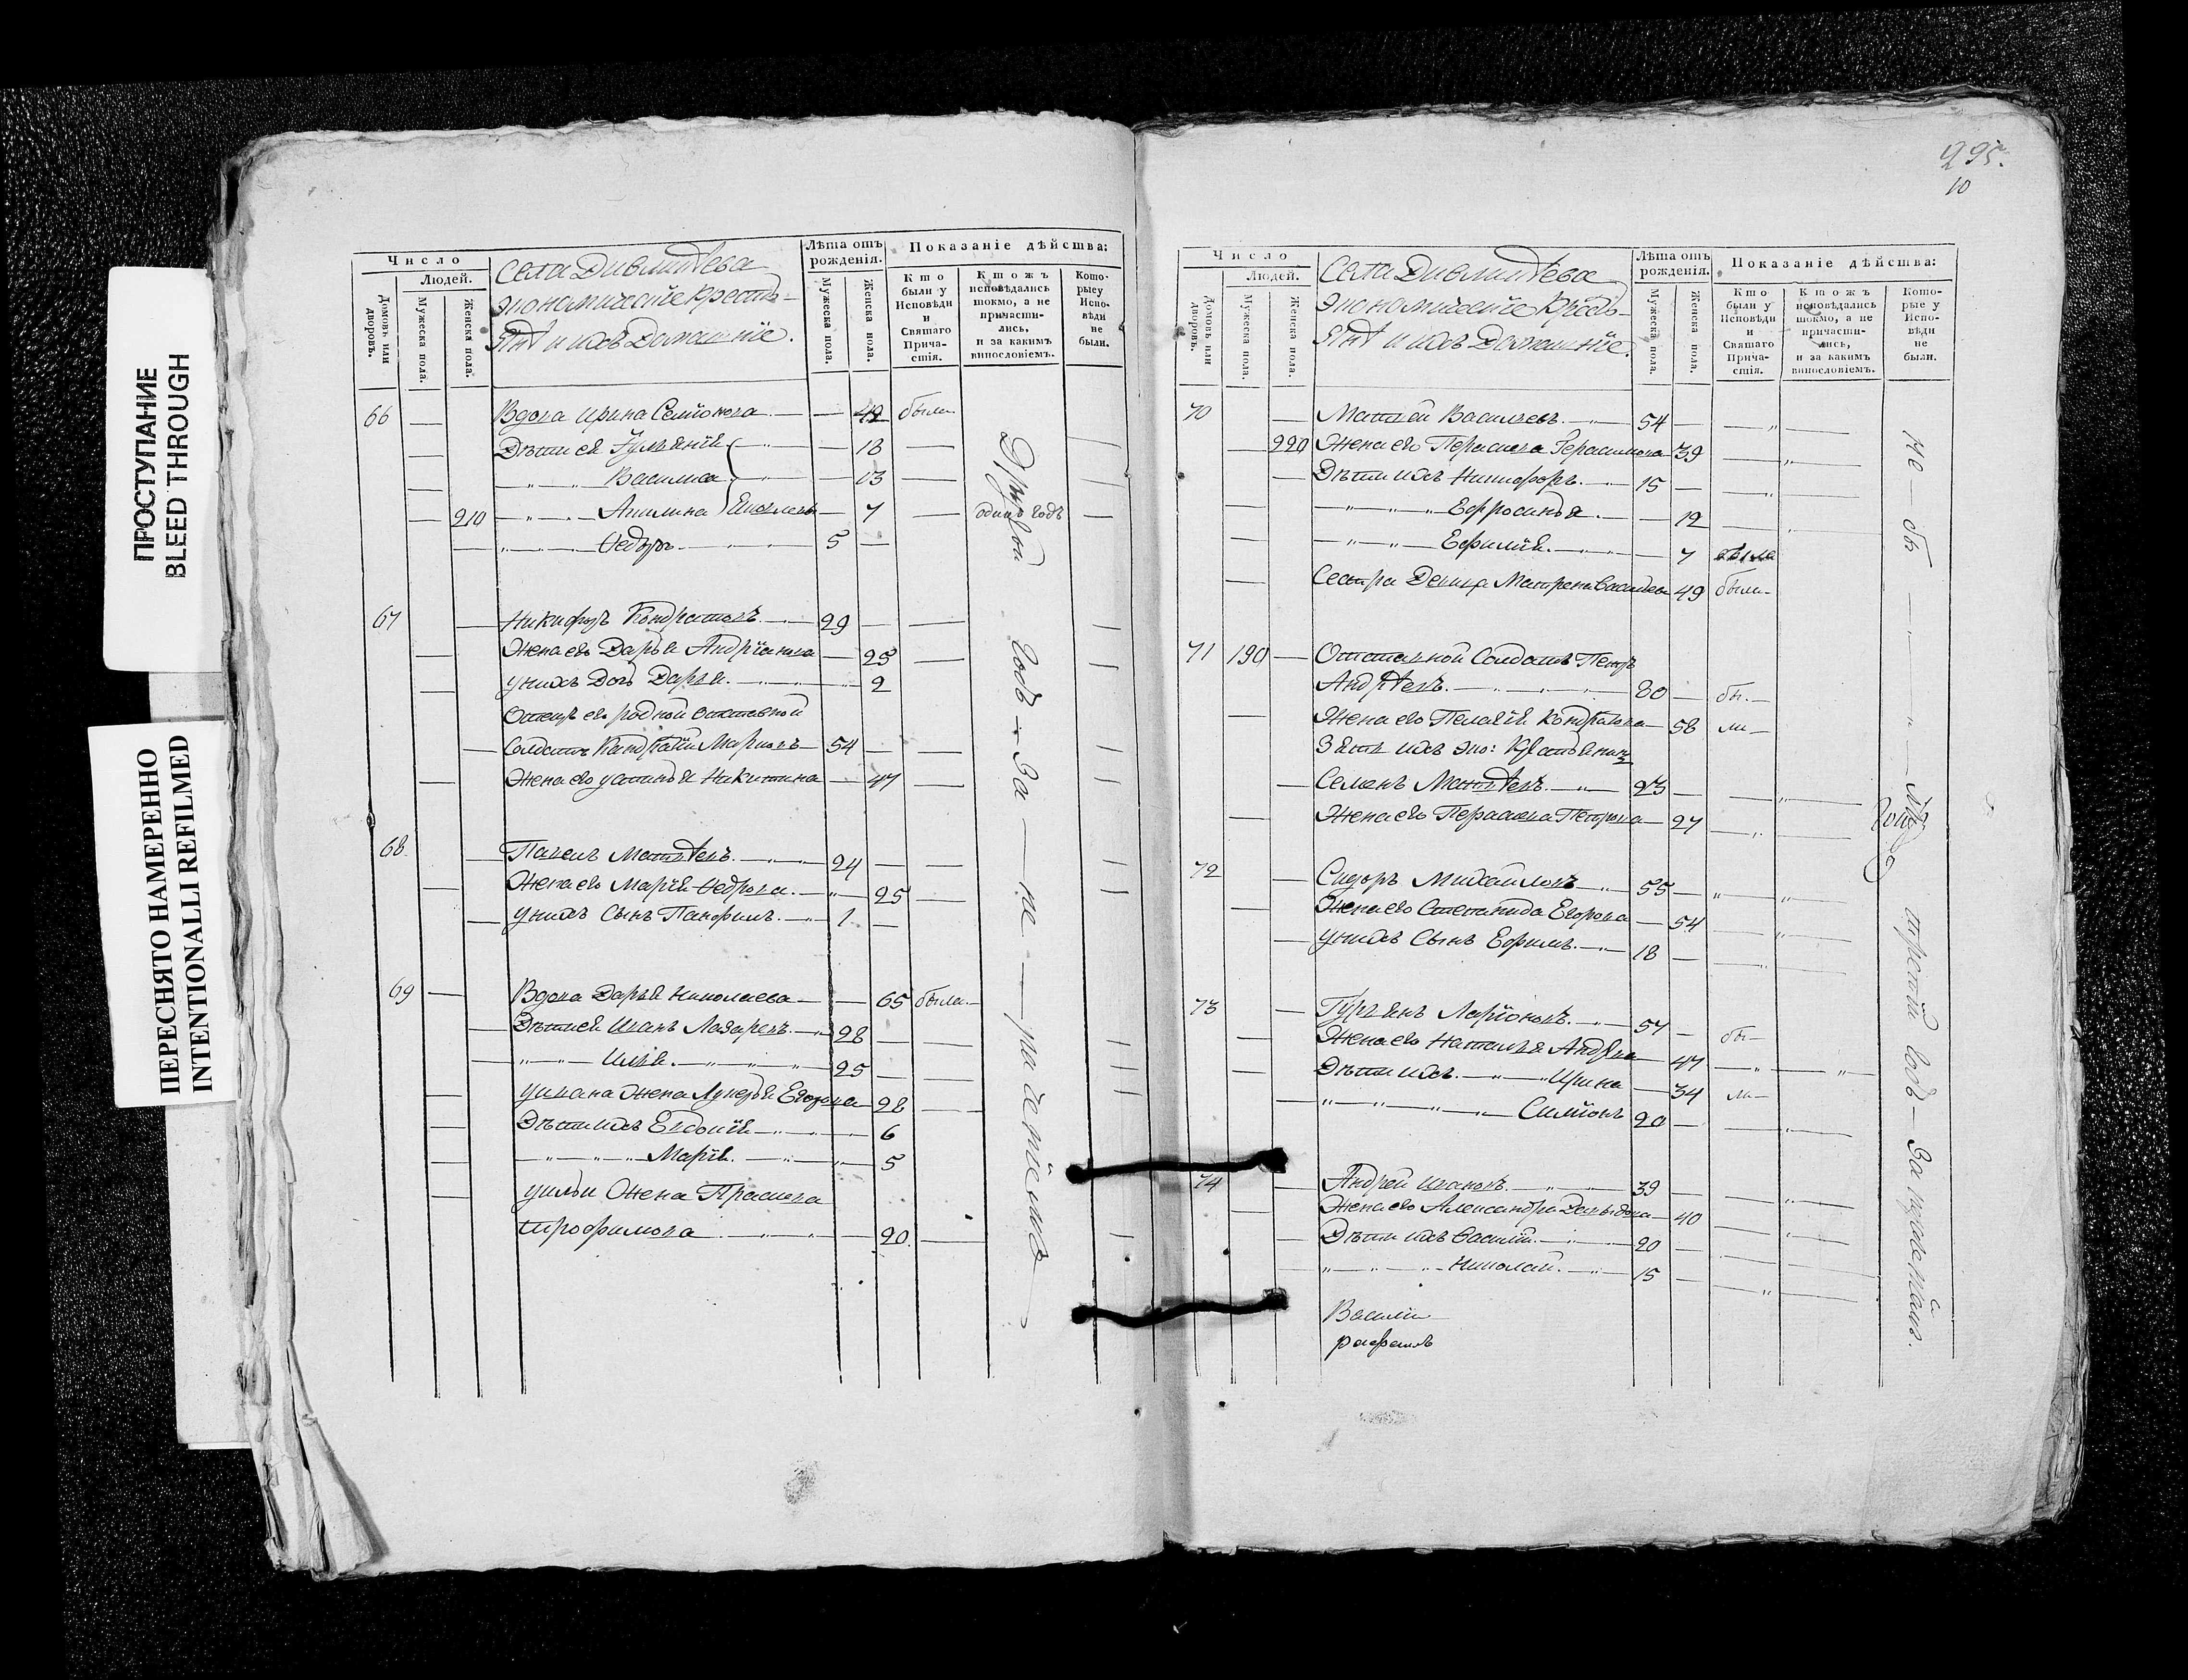 ПРОСТУПАНИЕ
BLEED THROUGH
ПЕРЕСНЯТО НАМЕРЕННО
INTENTIONALLI REFILMED
Число
Людей.
Домовъ или дворовъ.
Мужеска пола.
Женска пола.
Села Дивлитѣева
экономическіе кресть-
янѣ и ихъ Домашніе.
Лѣта отъ рожденія.
Мужеска пола.
Женска пола.
Показаніе дѣйства:
Кто были у Исповѣди и Святаго Причастія.
Ктожъ исповѣдались токмо, а не причастились, и за какимъ винословіемъ.
Которыеу Исповѣди не были.
66 — Вдова Ирина Семіонова — 42 были
— Дѣти ея Гулянія — 18
— Василиса — 13
— 210 Акилина — 7 — одинъ годъ
— Ѳедоръ 5 —
67 — Никифоръ Кондратовъ. 29 —
— Жена ево Дарья Андріанова — 25 —
— у нихъ Доч Дарья. 2
Отецъ ево родной отставной
— Солдатъ Кондратій Марковъ — 54 —
— Жена ево устинья Никитина — 47 —
68 — Павелъ Матвѣевъ. 24 —
— Жена ево Марія Ѳедрова. 25 —
— у нихъ Сынъ Панфилъ. 1. —
69 — Вдова Дарья Николаева — 65 была.
— Дѣти ея Иванъ Лазаревъ. 28 —
— Илья. 25 —
— у ивана Жена Лукерья Егорова 28 —
— Дѣти ихъ Евдокія 6
— Марія. 5
— у ильи Жена Праскева
трофимова 20. —
Другой годъ — за — не — радѣніемъ
295.
10
Число
Людей.
Домовъ или дворовъ.
Мужеска пола.
Женска пола.
Села Дивлитѣева
экономическіе кресть-
янѣ и ихъ Домашніе.
Лѣта отъ рожденія.
Мужеска пола.
Женска пола.
Показаніе дѣйства:
Кто были у Исповѣди и Святаго Причастія.
Ктожъ исповѣдались токмо, а не причастились, и за какимъ винословіемъ.
Которые у Исповѣди не были.
70 — Матвей Васильевъ. 54 —
— 220 Жена ево Пераскева Герасимова 39
— Дѣти ихъ Никифоръ. 15 —
— Ефросинья. — 12
— Ефимія. — 7 была
— Сестра Девица Матрена Васильева 49 были
71 190 — Отставной Солдатъ Петръ
Андрѣевъ. 80 — бы —
— Жена ево Пелагія Кондратова 58 ли —
Зять ихъ эко: Крестьянинъ
— Семенъ Матвѣевъ. 23 —
— Жена ево Пераскева Петрова 27
72 — Сидоръ Михайловъ 55 —
— Жена ево Степанида Егорова — 54
— у нихъ Сынъ Ефимъ. 18 —
73 — Гурьянъ Ларіоновъ. 57 — бы —
— Жена ево Наталья 47
— Дѣти ихъ. Ирина — 34 ли —
— Симіонъ 20 —
74 — Андрей Ивановъ. 39 —
— Жена ево Александра Давыдова 40
— Дѣти ихъ Василій. 20 —
— Николай. 15 —
Василій
не — бы — ли
третій годъ — За